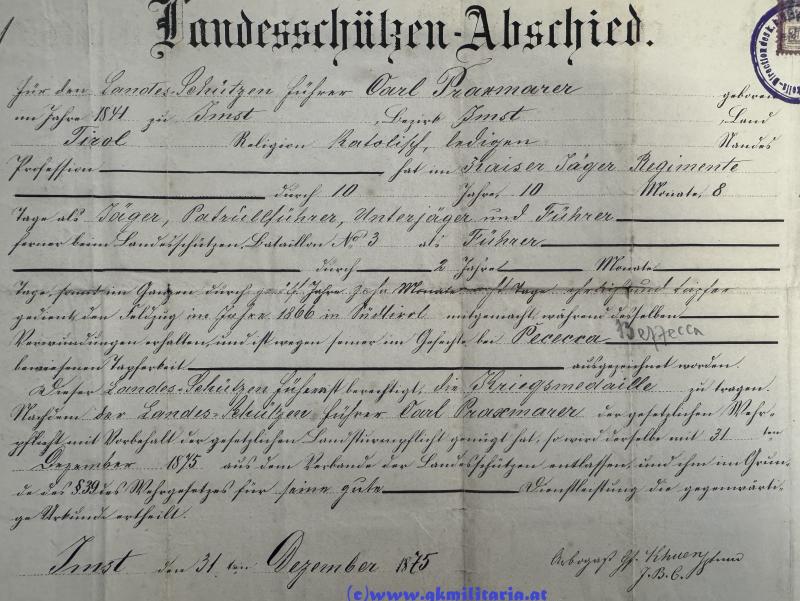 Landesschützen-Abschied.
für den Landes-Schützen Führer Carl Praxmarer geboren
im Jahre 1841 zu Imst, Bezirk Imst, Land
Tirol Religion Katolisch, ledigen Standes
Profession hat im Kaiser Jäger Regimente
durch 10 Jahre 10 Monate 8
Tage als Jäger, Patrullführer, Unterjäger und Führer
ferner beim Landesschützen-Bataillon No 3 als Führer
durch 2 Jahre Monate
Tage, somit im Ganzen durch Jahre zehn Monate acht Tage ehrlich und tapfer
gedient, den Feldzug im Jahre 1866 in Südtirol mitgemacht, während desselben
Verwundungen erhalten, und ist wegen seiner im Gefechte bei Pececca Bezzecca
bewiesenen Tapferkeit ausgezeichnet worden.
Dieser Landes-Schützen Führer ist berechtigt, die Kriegsmedaille zu tragen.
Nachdem der Landes-Schützen Führer Carl Praxmarer der gesetzlichen Wehr-
pflicht, mit Vorbehalt der gesetzlichen Landsturmpflicht genügt hat, so wird derselbe mit 31 ten
Dezember 1875 aus dem Verbande der Landesschützen entlassen, und ihm im Grun-
de des §39 des Wehrgesetzes für seine gute Dienstleistung die gegenwärti-
ge Urkunde ertheilt.
Imst den 31 ten Dezember 1875
Arbogast Gf. Khuen
J.B.C.
(c)www.gkmilitaria.at